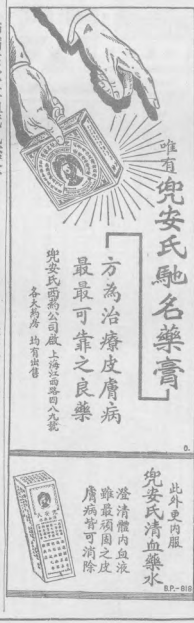 唯有
兜安氏馳名藥膏
方為治療皮膚病
最最可靠之良藥
兜安氏西藥公司啟 上海江西路四八九號
各大藥房 均有出售
此外更內服
兜安氏清血藥水
澄清體內血液
雖最頑固之皮
膚病皆可消除
B.P.-819